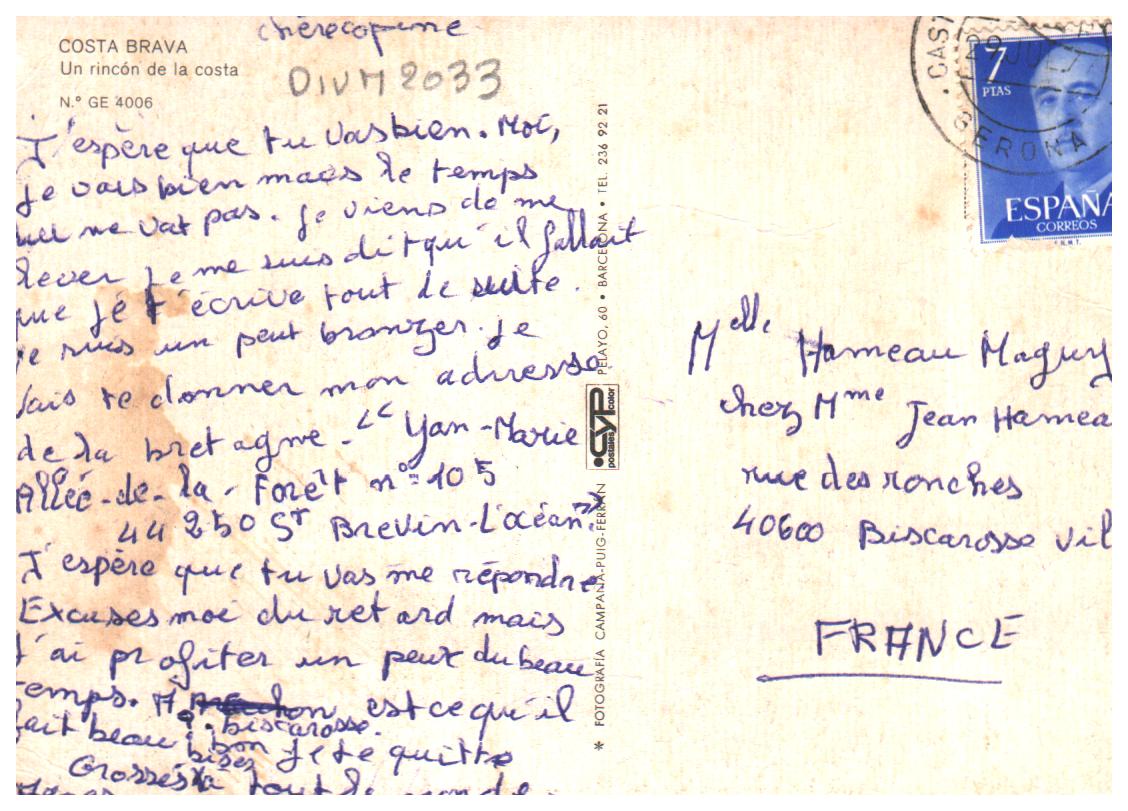 COSTA BRAVA
Un rincón de la costa
N.º GE 4006
chèrecopine
DIVM 2033
J'espère que tu vasbien. Moi,
je vais bien mais le temps
ne vat pas. je viens de me
lever je me suis dit qu'il fallait
que jé t'écrive tout de suite.
je suis un peut bronzer. je
vais te donner mon adresse
de la bretagne. << Yan-Marie
Allée-de-la-Forêt n°=105
44 250 St Brevin-L'océan>>
J'espère que tu vas me répondre
Excuses moi du retard mais
j'ai profiter un peut du beau
temps. A est ce qu'il
biscarosse.
fait beau; bon je te quitte
Grosses bises à tout le monde.
FOTOGRAFÍA CAMPAÑA-PUIG-FERRÁN
postales CYP color
PELAYO, 60 • BARCELONA • TEL. 236 92 21
CAST
29 JU
GERONA
7
PTAS
ESPAÑA
CORREOS
F.N.M.T.
Melle Hameau Maguy
chez Mme Jean Hamea
rue des ronches
40600 Biscarosse Vil
FRANCE